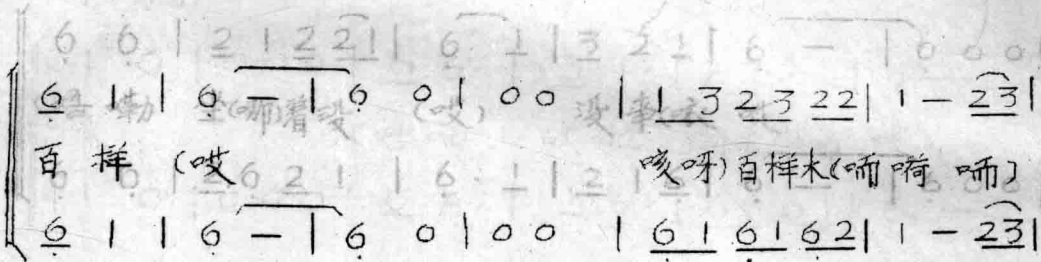 6̣ 1 | 6̣ — | 6̣ 0 | 0 0 | 1 3 2 3 2 2 | 1 — 2 3 |
百 样 (哎 咳 呀) 百样木(哂 嗬 哂)
6̣ 1 | 6̣ — | 6̣ 0 | 0 0 | 6̣ 1 6̣ 1 6̣ 2 | 1 — 2 3 |